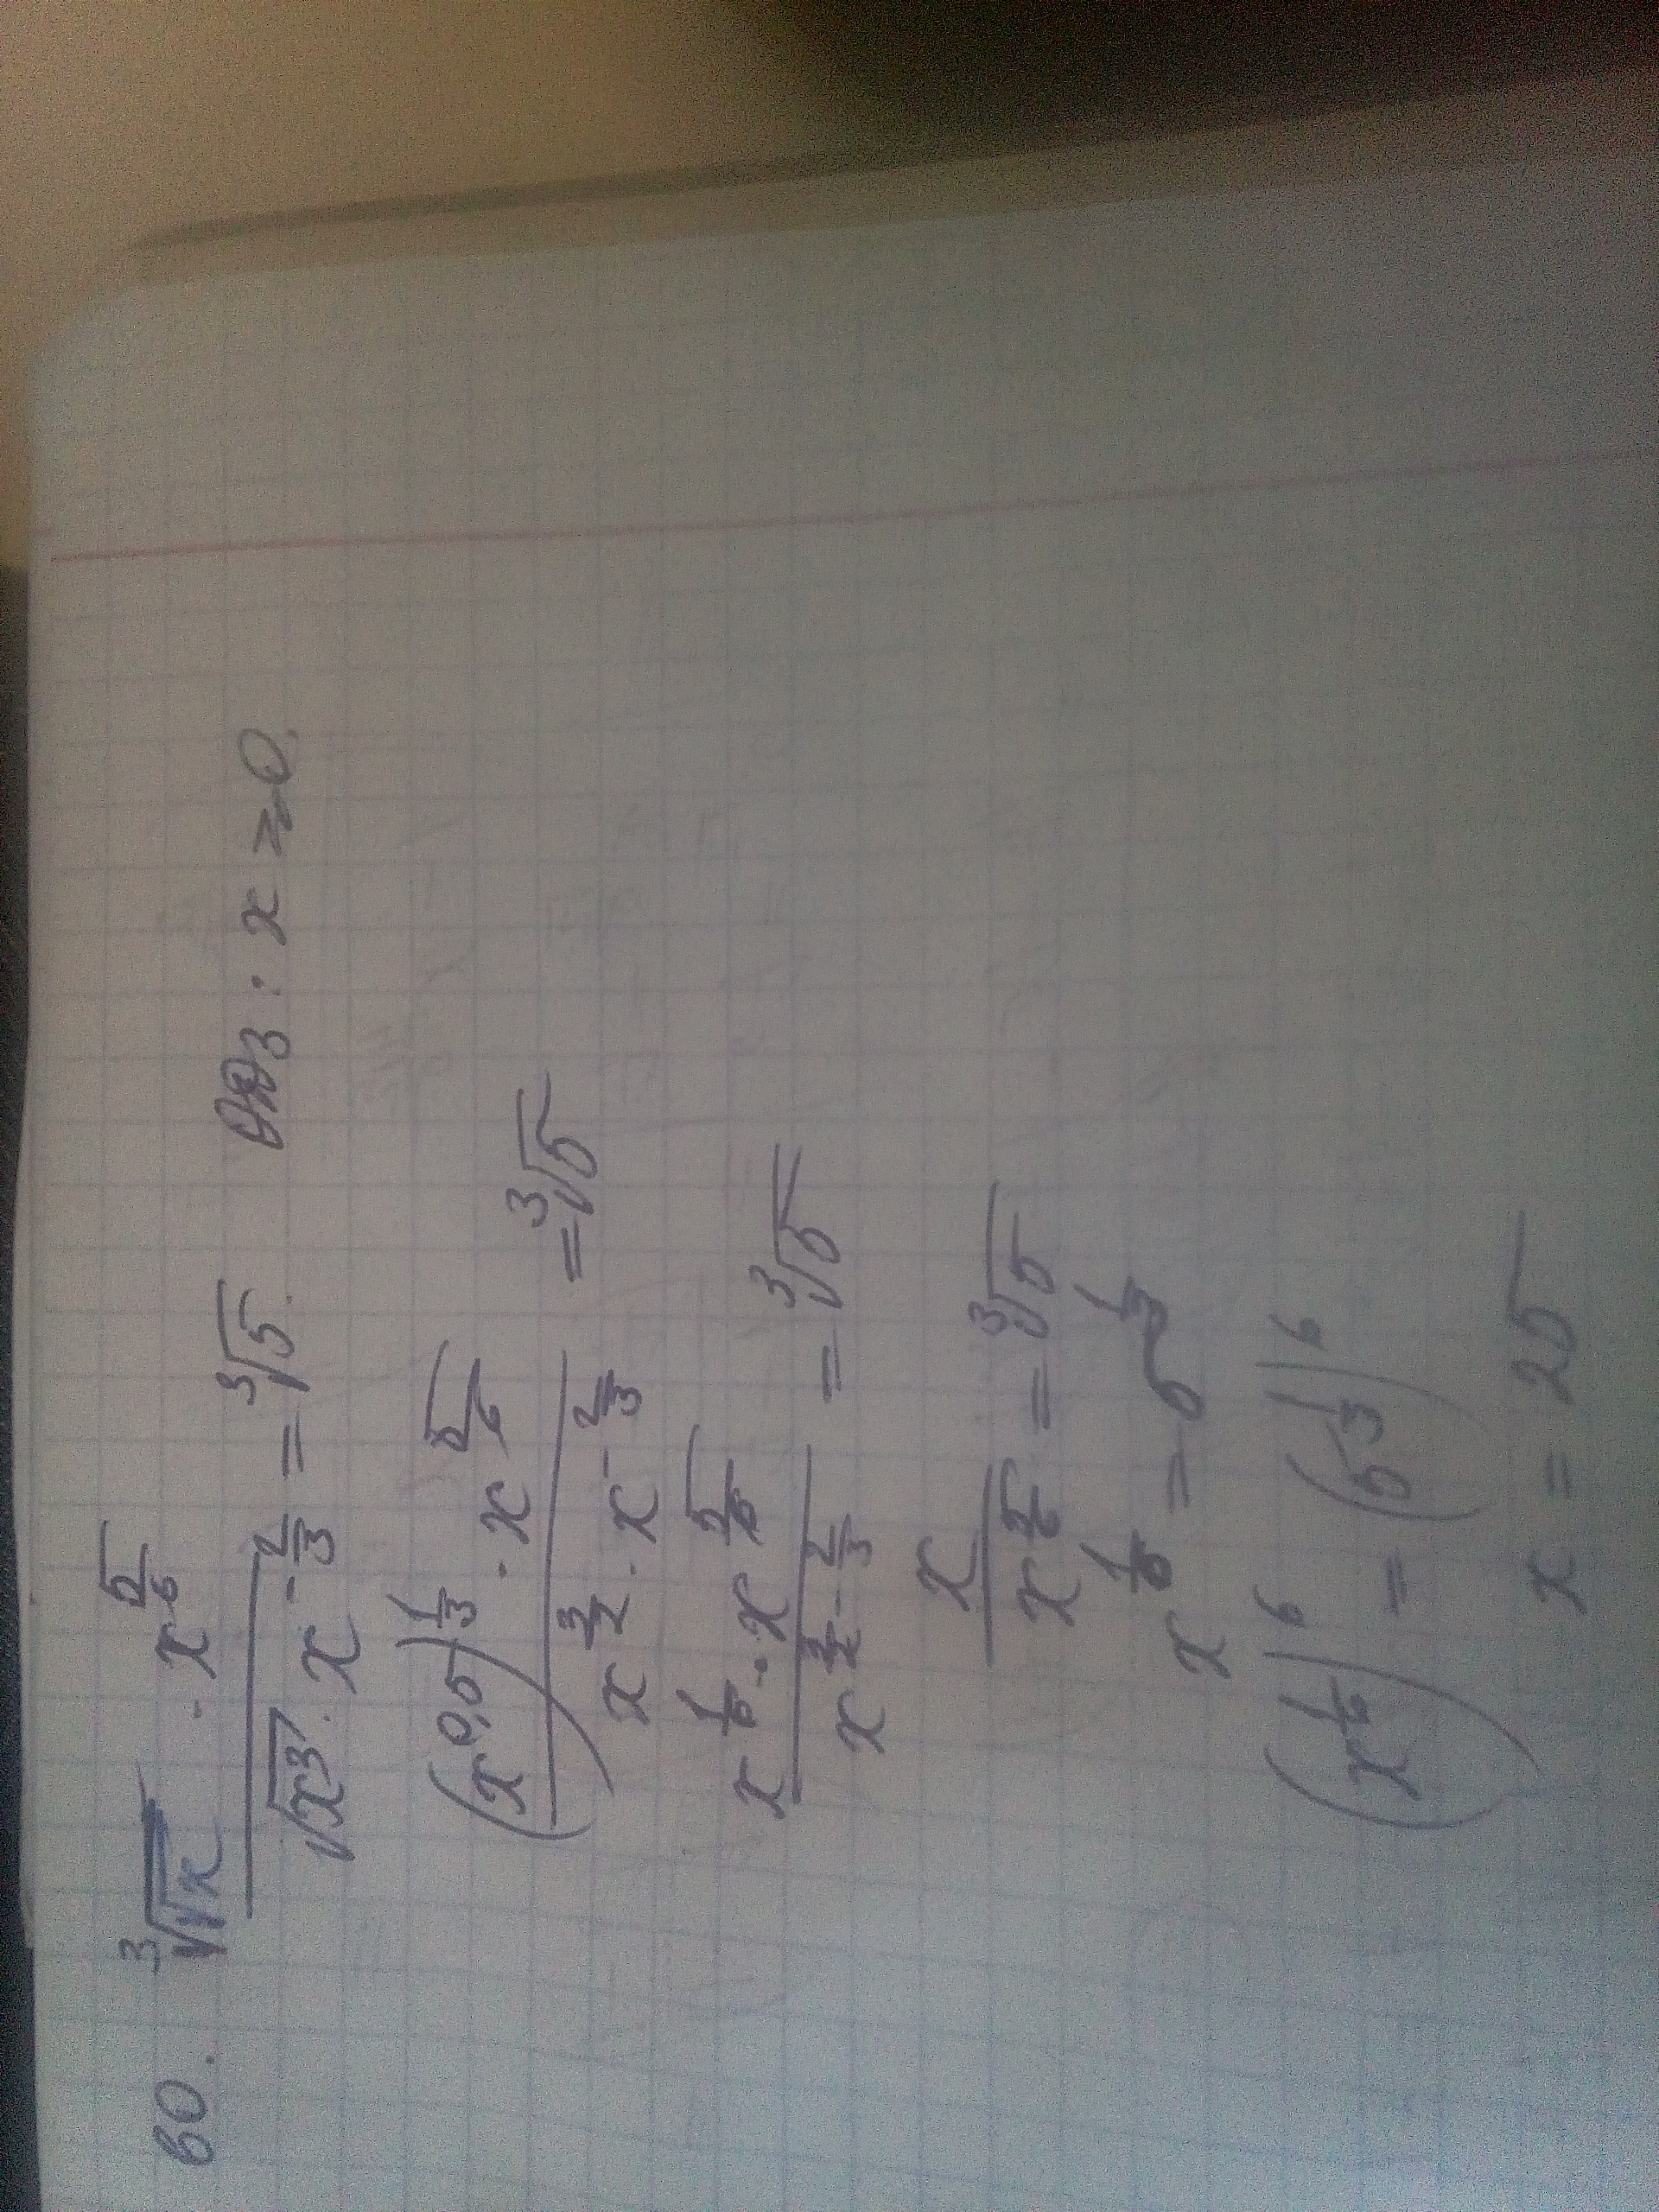 60. ∛(√x) · x^(5/6) / (√(x³) · x^(-2/3)) = ∛5. ОДЗ: x ⩾ 0.
(x^(0,5))^(1/3) · x^(5/6) / (x^(3/2) · x^(-2/3)) = ∛5
x^(1/6) · x^(5/6) / x^(3/2 - 2/3) = ∛5
x / x^(5/6) = ∛5
x^(1/6) = 5^(1/3)
(x^(1/6))^6 = (5^(1/3))^6
x = 25